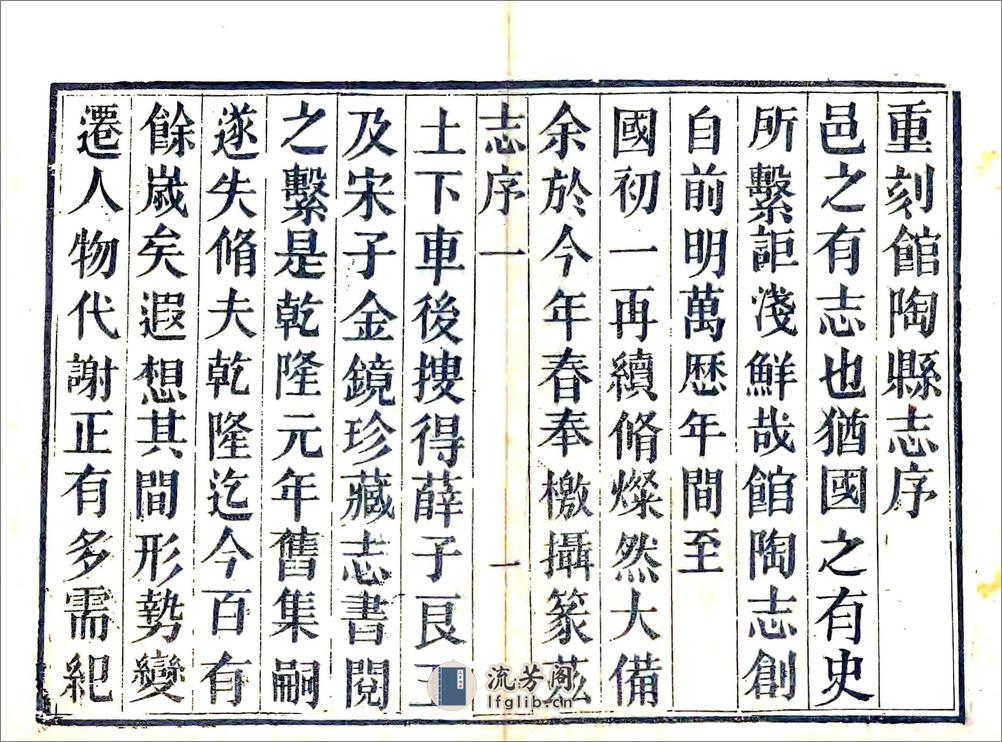 重刻館陶縣志序
邑之有志也猶國之有史
所繫詎淺鮮哉館陶志創
自前明萬歴年間至
國初一再續脩燦然大備
余於今年春奉檄攝篆茲
志序一 一
土下車後搜得薛子艮三
及宋子金鏡珍藏志書閱
之繫是乾隆元年舊集嗣
遂失脩夫乾隆迄今百有
餘嵗矣遐想其間形勢變
遷人物代謝正有多需紀
流芳阁
lfglib.cn